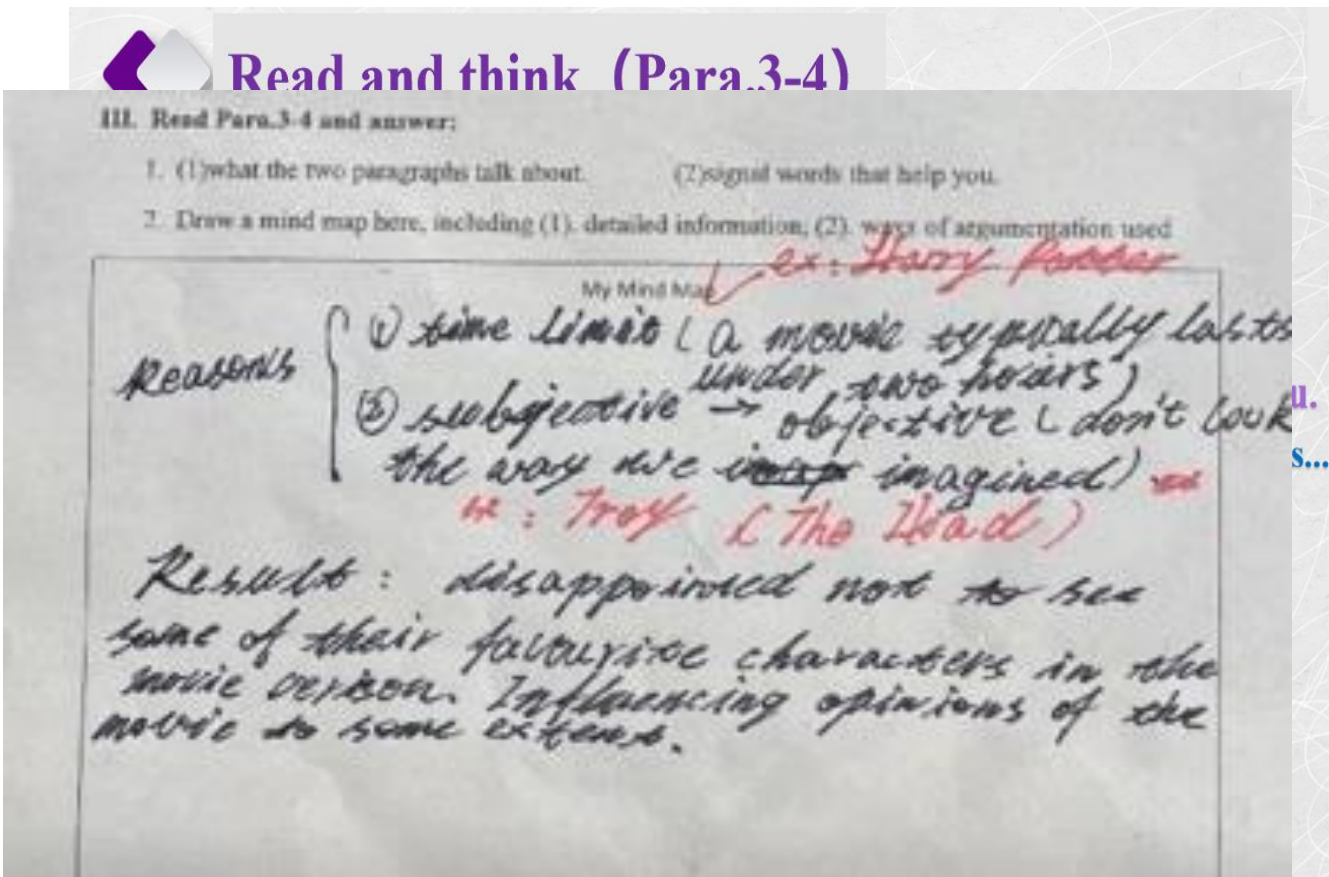 Read and think（Para.3-4）
III. Read Para.3-4 and answer:
1. (1)what the two paragraphs talk about. (2)signal words that help you.
2. Draw a mind map here, including (1). detailed information, (2). ways of argumentation used
ex: Harry Potter
My Mind Map
Reasons
① time limit ( a movie typically lasts
under two hours )
② subjective → objective ( don't look
the way we imagined )
: Troy ( The Iliad )
Result : disappointed not to see
some of their favourite characters in the
movie verison. Influencing opinions of the
movie to some extent.
u.
s...